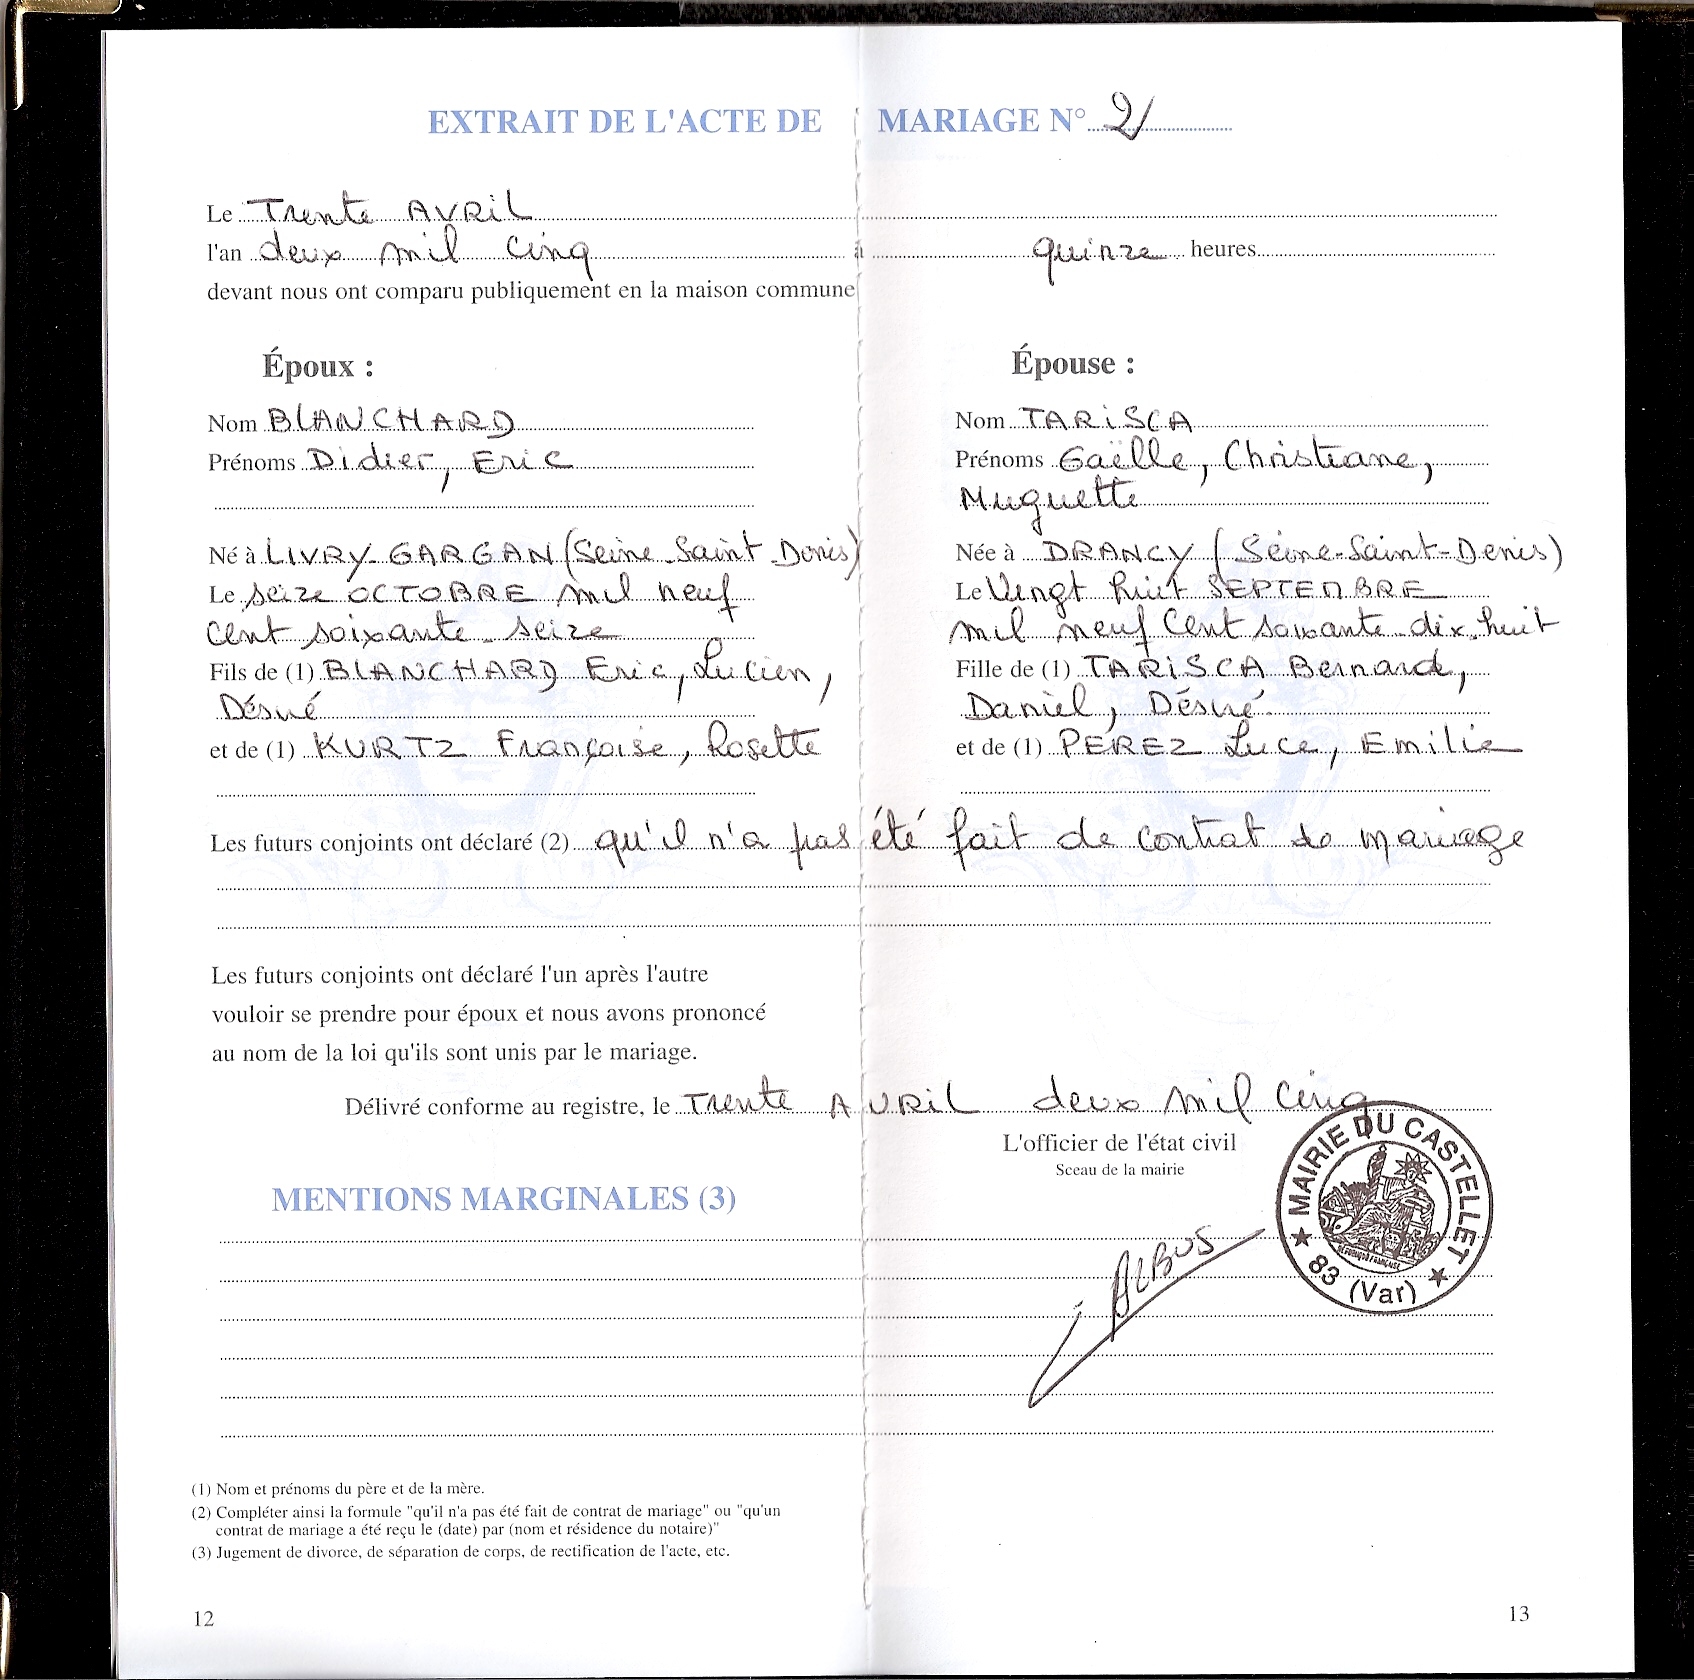 EXTRAIT DE L'ACTE DE MARIAGE N° 2
Le Trente AVRIL
l'an deux mil cinq à quinze heures
devant nous ont comparu publiquement en la maison commune
Époux :
Nom BLANCHARD
Prénoms Didier, Eric
Né à LIVRY-GARGAN (Seine-Saint-Denis)
Le seize OCTOBRE mil neuf
cent soixante-seize
Fils de (1) BLANCHARD Eric, Lucien,
Désiré
et de (1) KURTZ Françoise, Rosette
Épouse :
Nom TARISCA
Prénoms Gaëlle, Christiane,
Muguette
Née à DRANCY (Seine-Saint-Denis)
Le Vingt huit SEPTEMBRE
mil neuf cent soixante-dix-huit
Fille de (1) TARISCA Bernard,
Daniel, Désiré
et de (1) PEREZ Luce, Emilie
Les futurs conjoints ont déclaré (2) qu'il n'a pas été fait de contrat de mariage
Les futurs conjoints ont déclaré l'un après l'autre
vouloir se prendre pour époux et nous avons prononcé
au nom de la loi qu'ils sont unis par le mariage.
Délivré conforme au registre, le Trente AVRIL deux mil cinq
L'officier de l'état civil
Sceau de la mairie
MAIRIE DU CASTELLET
83 (Var)
ALBUS
MENTIONS MARGINALES (3)
(1) Nom et prénoms du père et de la mère.
(2) Compléter ainsi la formule "qu'il n'a pas été fait de contrat de mariage" ou "qu'un
contrat de mariage a été reçu le (date) par (nom et résidence du notaire)"
(3) Jugement de divorce, de séparation de corps, de rectification de l'acte, etc.
12
13